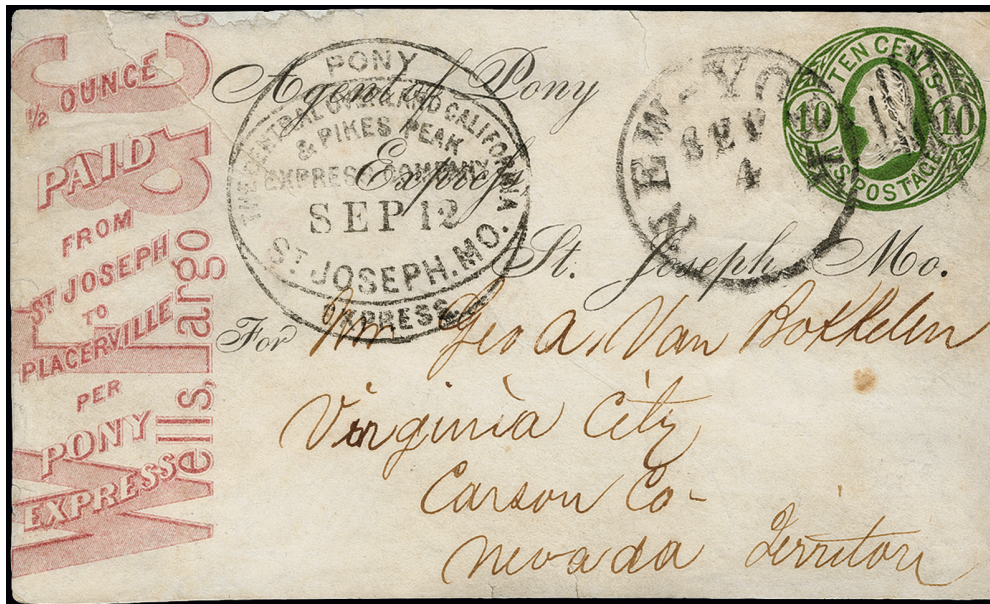 ½ OUNCE
PAID
FROM
ST JOSEPH
TO
PLACERVILLE
PER
PONY
EXPRESS
Wells, Fargo & Co
PONY
THE CENTRAL OVERLAND CALIFORNIA
& PIKES PEAK
EXPRESS COMPANY
SEP 12
ST JOSEPH. MO.
EXPRESS
NEW-YORK
SEP
4
TEN CENTS
10 10
U.S. POSTAGE
Agent of Pony
Express
St. Joseph Mo.
For Mr Geo A. Van Bokkelen
Virginia City
Carson Co-
Nevada Territory